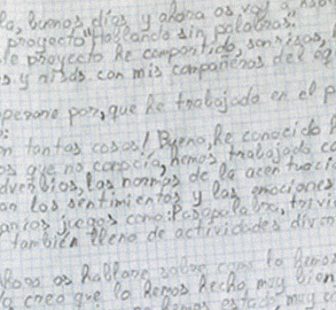 la, buenos días y ahora os voy a
proyecto "Hablando sin palabras".
te proyecto he compartido, sonrisas,
s y risas con mis compañeros del eq
perone por, que he trabajado en el p
n tantas cosas! Bueno, he conocido
os que no conocía, hemos trabajado co
dverbios, las normas de la acentuació
an los sentimientos y las emociones
arios juegos como: Pasapalabra, trivi
también lleno de actividades diver
hora os hablare sobre como lo hemos
la creo que lo hemos hecho muy bien
hemos estado muy